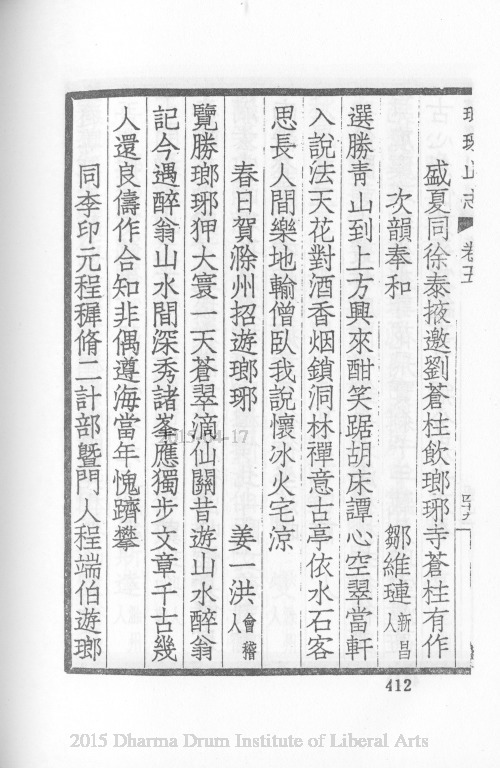 琅琊山志 卷五 四十九
盛夏同徐泰掖邀劉蒼柱飲瑯琊寺蒼柱有作
次韻奉和 鄒維璉新昌人
選勝青山到上方興來酣笑踞胡床譚心空翠當軒
入說法天花對酒香烟鎖洞林禪意古亭依水石客
思長人間樂地輸僧臥我說懷冰火宅涼
春日賀滁州招遊瑯琊 姜一洪會稽人
覽勝瑯琊狎大寰一天蒼翠滴仙關昔遊山水醉翁
記今遇醉翁山水間深秀諸峯應獨步文章千古幾
人還良儔作合知非偶遵海當年愧躋攀
同李印元程穉脩二計部暨門人程端伯遊瑯
412
2015-04-17
2015 Dharma Drum Institute of Liberal Arts